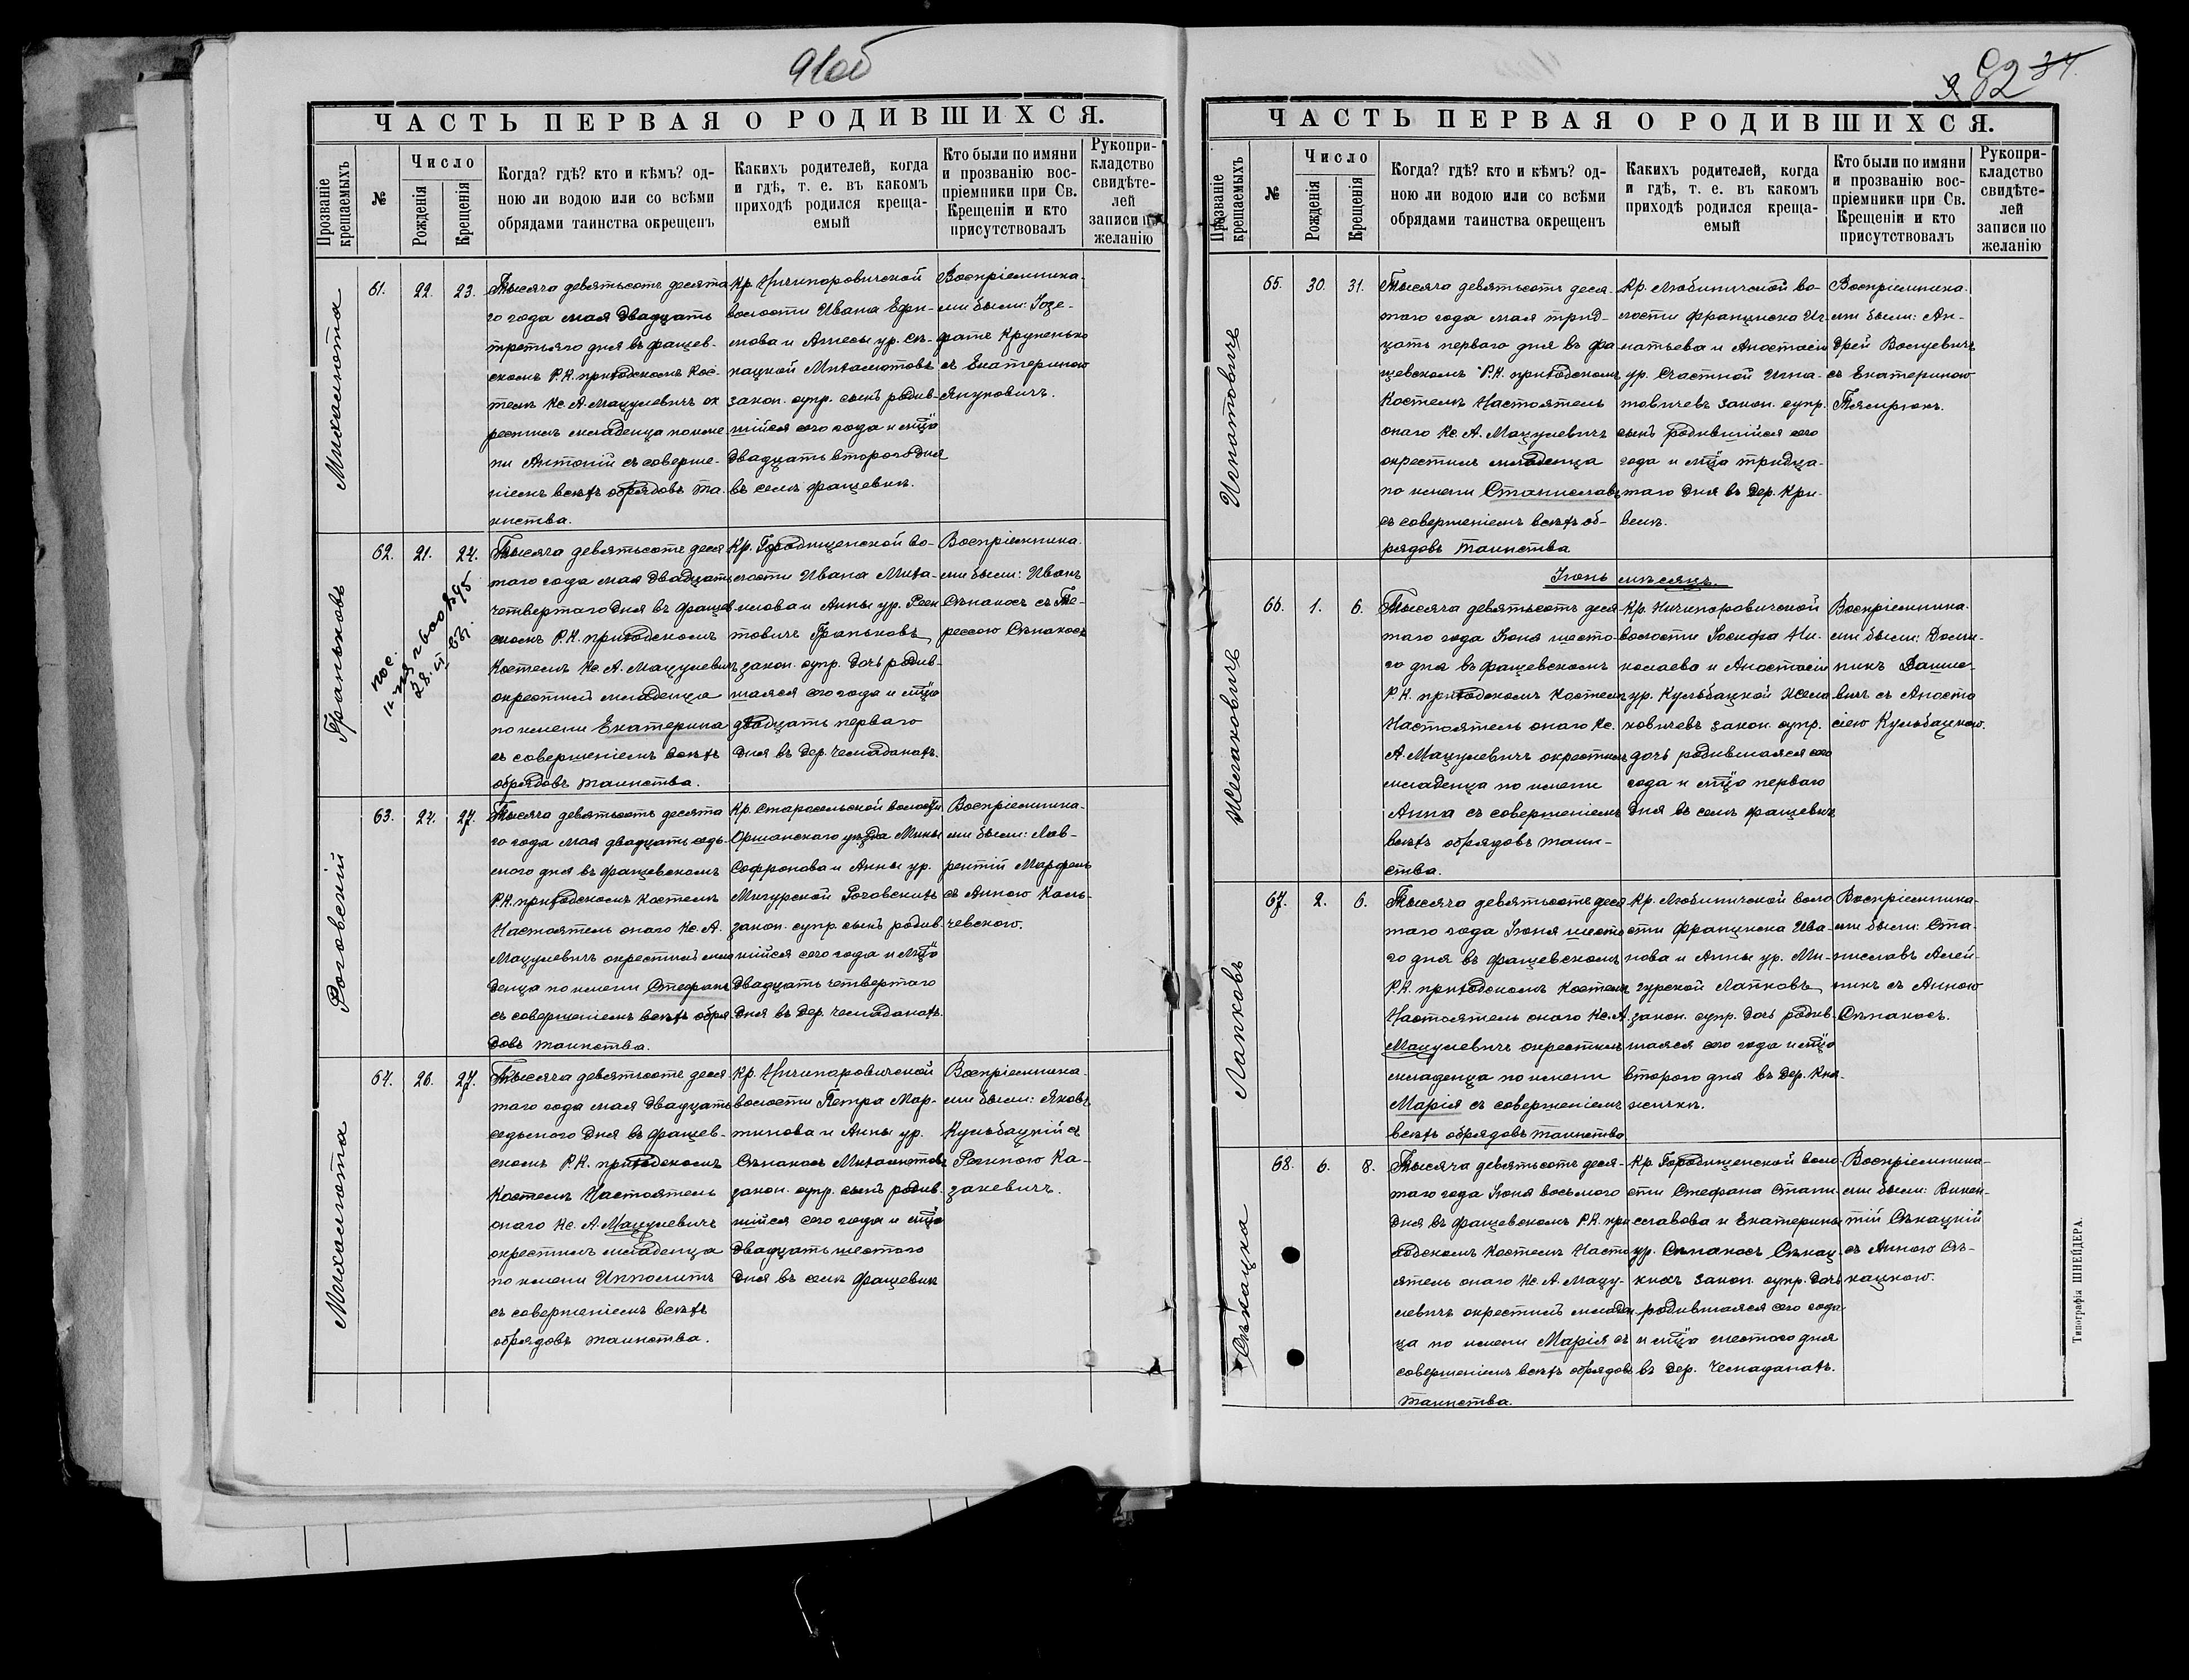 91об
ЧАСТЬ ПЕРВАЯ О РОДИВШИХСЯ.
Прозваніе крещаемыхъ
№
Число
Рожденія
Крещенія
Когда? гдѣ? кто и кѣмъ? од-
ною ли водою или со всѣми
обрядами таинства окрещенъ
Каких̾ъ родителей, когда
и гдѣ, т. е. въ какомъ
приходѣ родился креща-
емый
Кто были по имяни
и прозванію вос-
пріемники при Св.
Крещеніи и кто
присутствовалъ
Рукопри-
кладство
свидѣте-
лей
записи по
желанію
Михолюта
61.
22.
23.
Тысяча девятьсотъ десята
го года мая двадцать
третьяго дня въ фащев-
скомъ Р.К. приходскомъ Кос-
телѣ Кс. А. Мацулевичъ ок
рестилъ младенца по име-
ни Антоній съ соверше-
ніемъ всѣхъ обрядовъ та-
инства.
Кр. Ничипоровичской
волости Ивана Ефи-
мова и Агнесы ур. Сѣ-
кацкой Михолютовъ
закон. супр. сынъ родив-
шійся сего года и мѣца
двадцать второго дня
въ селѣ фащевкѣ.
Воспріемника-
ми были: Іозе-
фатъ Крупенько
съ Екатериною
Януковичъ.
Граньковъ
62.
21.
24.
28. VI
Тысяча девятьсотъ деся
таго года мая двадцать
четвертаго дня въ фащев
скомъ Р.К. приходскомъ
Костелѣ Кс. А. Мацулевичъ
окрестилъ младенца
по имени Екатерина
съ совершеніемъ всѣхъ
обрядовъ таинства.
Кр. Городищенской во-
лости Ивана Миха-
илова и Анны ур. Реен
товичъ Граньковъ
закон. супр. дочь родив-
шаяся сего года и мѣца
двадцать перваго
дня въ дер. Чемоданахъ.
Воспріемника-
ми были: Иванъ
Сѣпакосъ съ Те-
рессою Сѣпакосъ
Роговскій
63.
24.
27.
Тысяча девятьсотъ десята
го года мая двадцать седь-
мого дня въ фащевскомъ
Р.К. приходскомъ костелѣ
Настоятель онаго Кс. А.
Мацулевичъ окрестилъ мла
денца по имени Стефанъ
съ совершеніемъ всѣхъ обря
довъ таинства.
Кр. Старосельской волости
Оршанскаго уѣзда Мины
Софронова и Анны ур.
Мигурской Роговскихъ
закон. супр. сынъ родив-
шійся сего года и мѣца
двадцать четвертаго
дня въ дер. Чемоданахъ.
Воспріемника-
ми были: Лав-
рентій Марфель
съ Анною Каль-
чевскою.
Михолюта
64.
26.
27.
Тысяча девятьсотъ деся-
таго года мая двадцать
седьмого дня въ фащев-
скомъ Р.К. приходскомъ
Костелѣ Настоятель
онаго Кс. А. Мацулевичъ
окрестилъ младенца
по имени Ипполитъ
съ совершеніемъ всѣхъ
обрядовъ таинства.
Кр. Ничипоровичской
волости Петра Мар-
тинова и Анны ур.
Сѣпакосъ Михолютовъ
закон. супр. сынъ родив-
шійся сего года и мѣца
двадцать шестого
дня въ селѣ фащевкѣ
Воспріемника-
ми были: Яковъ
Кульбацкій съ
Региною Ка-
закевичъ.
92 34.
ЧАСТЬ ПЕРВАЯ О РОДИВШИХСЯ.
Прозваніе крещаемыхъ
№
Число
Рожденія
Крещенія
Когда? гдѣ? кто и кѣмъ? од-
ною ли водою или со всѣми
обрядами таинства окрещенъ
Какихъ родителей, когда
и гдѣ, т. е. въ какомъ
приходѣ родился креща-
емый
Кто были по имяни
и прозванію вос-
пріемники при Св.
Крещеніи и кто
присутствовалъ
Рукопри-
кладство
свидѣте-
лей
записи по
желанію
Игнатовичъ
65.
30.
31.
Тысяча девятьсотъ деся-
таго года мая трид-
цать перваго дня въ фа-
щевскомъ Р.К. приходскомъ
Костелѣ Настоятель
онаго Кс. А. Мацулевичъ
окрестилъ младенца
по имени Станиславъ
съ совершеніемъ всѣхъ об-
рядовъ таинства
Кр. Любиничской во-
лости франциска Иг-
натьева и Анастасіи
ур. Счастной Игна-
товичевъ закон. супр.
сынъ родившійся сего
года и мѣца тридца-
таго дня въ дер. Кри-
велѣ.
Воспріемника-
ми были: Ан-
дрей Войцевичъ
съ Екатериною
Тямрюкъ.
Іюнь мѣсяцъ.
Жемаковичъ
66.
1.
6.
Тысяча девятьсотъ деся-
таго года Іюня шесто-
го дня въ фащевскомъ
Р.К. приходскомъ Костелѣ
Настоятель онаго Кс.
А. Мацулевичъ окрестилъ
младенца по имени
Анна съ совершеніемъ
всѣхъ обрядовъ таин-
ства.
Кр. Ничипоровичской
волости Іосифа Ни-
колаева и Анастасіи
ур. Кульбацкой Жема
ковичевъ закон. супр.
дочь родившаяся сего
года и мѣца перваго
дня въ селѣ фащевкѣ
Воспріемника-
ми были: Доми-
никъ Дашке-
вичъ съ Анаста
сіею Кульбацкою.
Лапковъ
67.
2.
6.
Тысяча девятьсотъ деся-
таго года Іюня шесто
го дня въ фащевскомъ
Р.К. приходскомъ костелѣ
Настоятель онаго Кс. А.
Мацулевичъ окрестилъ
младенца по имени
Марія съ совершеніемъ
всѣхъ обрядовъ таинства
Кр. Любиничской воло
сти франциска Ива-
нова и Анны ур. Ми-
гурской Лапковъ
закон. супр. дочь родив-
шаяся сего года и мѣца
второго дня въ дер. Кня-
жичкѣ.
Воспріемника-
ми были: Ста-
ниславъ Алей-
никъ съ Анною
Сѣпакосъ.
Сѣкацка
68.
6.
8.
Тысяча девятьсотъ деся-
таго года Іюня восьмого
дня въ фащевскомъ Р.К. при
ходскомъ костелѣ Насто
ятель онаго Кс. А. Мацу-
левичъ окрестилъ младен
ца по имени Марія съ
совершеніемъ всѣхъ обрядовъ
таинства.
Кр. Городищенской воло
сти Стефана Стани-
славова и Екатерины
ур. Сѣпакосъ Сѣкац-
кихъ закон. супр. дочь
родившаяся сего года
и мѣца шестого дня
въ дер. Чемаданахъ.
Воспріемника-
ми были: Викен-
тій Сѣкацкій
съ Анною Сѣ-
кацкою.
Типографія ШНЕЙДЕРА.